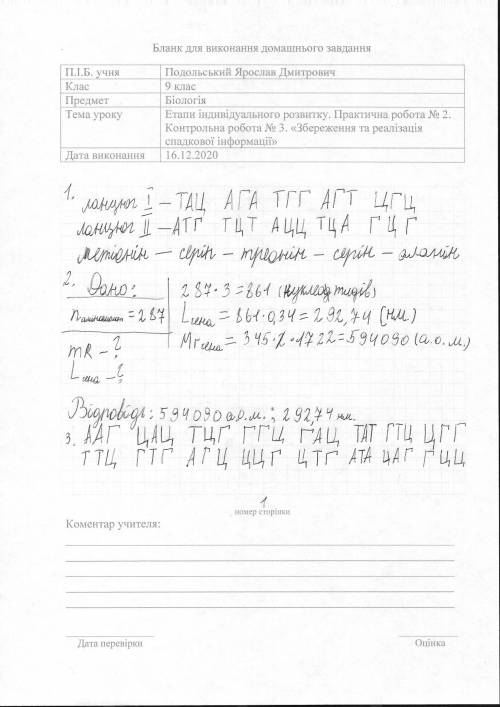 Бланк для виконання домашнього завдання
П.І.Б. учня Подольський Ярослав Дмитрович
Клас 9 клас
Предмет Біологія
Тема уроку Етапи індивідуального розвитку. Практична робота № 2.
Контрольна робота № 3. «Збереження та реалізація
спадкової інформації»
Дата виконання 16.12.2020
1. ланцюг I – ТАЦ АГА ТГГ АГТ ЦГЦ
ланцюг II – АТГ ТЦТ АЦЦ ТЦА ГЦГ
метіонін – серін – треонін – серін – аланін
2. Дано:
n амінокислот = 287
mR – ?
L гена – ?
287·3=861 (нуклеотидів)
L гена = 861·0,34 = 292,74 (нм)
Mr гена = 345·2·1722 = 594090 (а.о.м.)
Відповідь: 594090 а.о.м.; 292,74 нм.
3. ААГ ЦАЦ ТЦГ ГГЦ ГАЦ ТАТ ГТЦ ЦГГ
ТТЦ ГТГ АГЦ ЦЦГ ЦТГ АТА ЦАГ ГЦЦ
1
номер сторінки
Коментар учителя:
Дата перевірки Оцінка